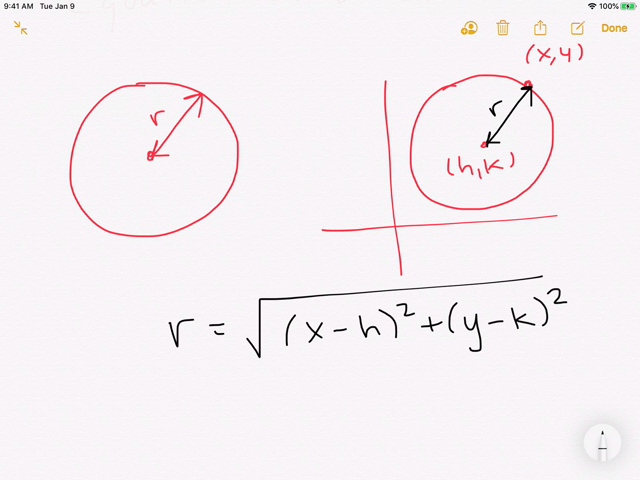 9:41 AM Tue Jan 9
100%
Done
(x,y)
r
r
(h,k)
r = √(x-h)² + (y-k)²